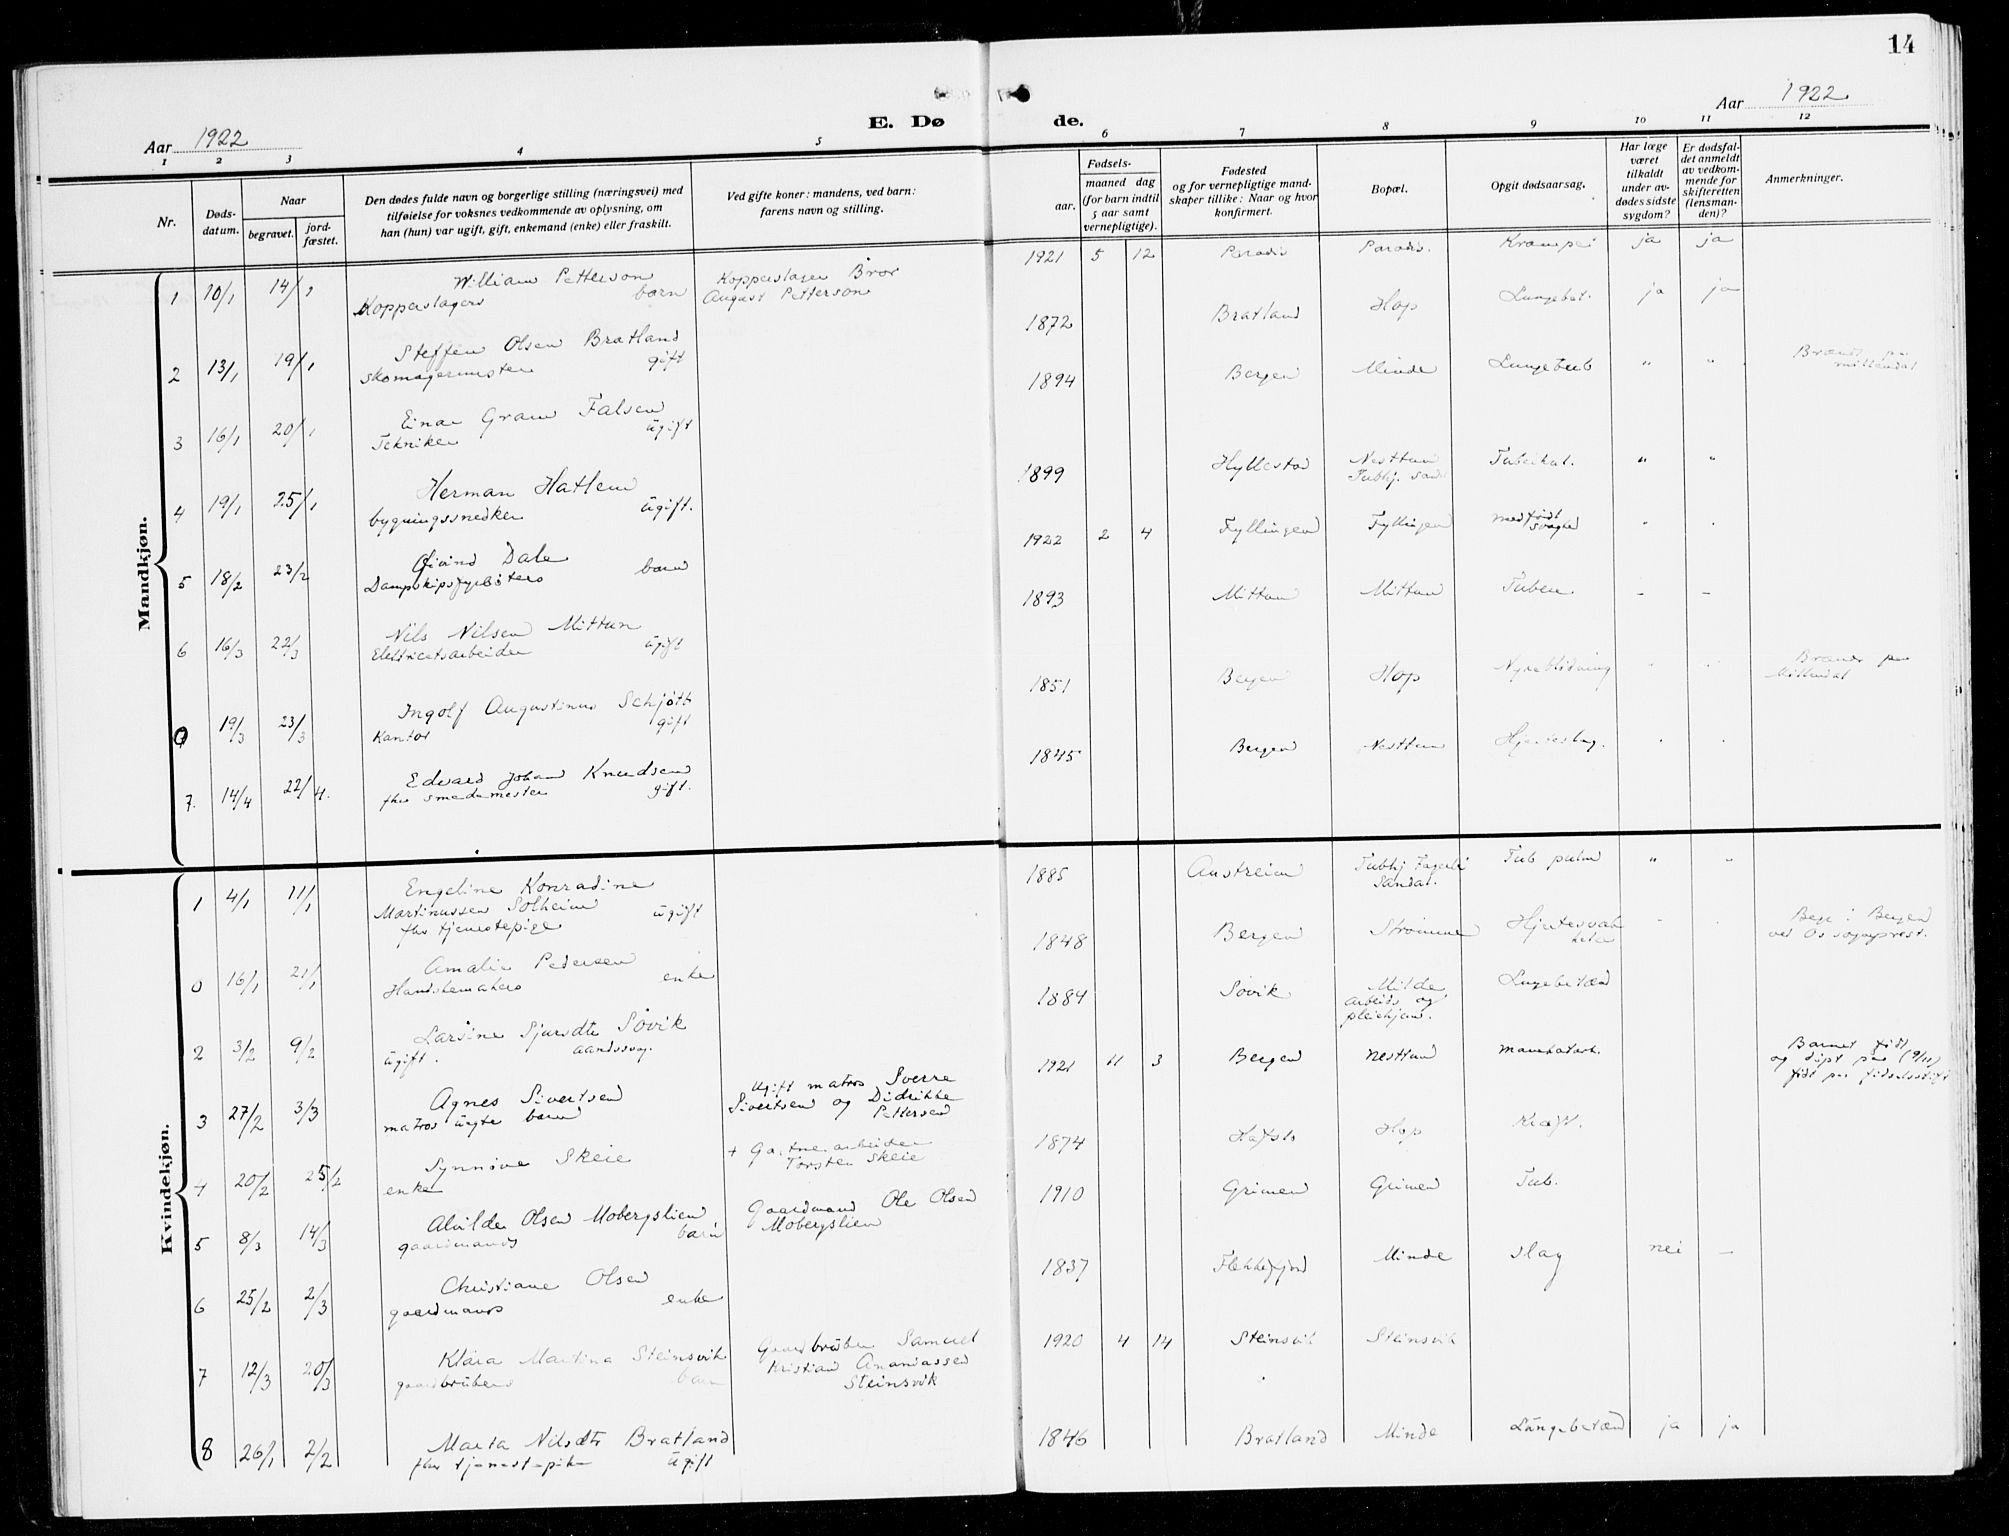 14
Aar 1922
E. Døde.
Aar 1922
1 2 3 4 5 6 7 8 9 10 11 12
Nr.
Døds-
datum.
Naar
begravet.
jord-
fæstet.
Den dødes fulde navn og borgerlige stilling (næringsvei) med
tilføielse for voksnes vedkommende av oplysning, om
han (hun) var ugift, gift, enkemand (enke) eller fraskilt.
Ved gifte koner: mandens, ved barn:
farens navn og stilling.
Fødsels-
aar.
maaned dag
(for barn indtil
5 aar samt
vernepligtige).
Fødested
og for vernepligtige mand-
skaper tillike: Naar og hvor
konfirmert.
Bopæl.
Opgit dødsaarsag.
Har læge
været
tilkaldt
under av-
dødes sidste
sygdom?
Er dødsfal-
det anmeldt
av vedkom-
mende for
skifteretten
(lensman-
den)?
Anmerkninger.
Mandkjøn.
1 10/1 14/1 William Petterson Kopperslager Bror 1921 5 12 Paradis Paradis. Krampe ja ja
Kopperslagers barn August Petterson
2 13/1 19/1 Steffen Olsen Bratland 1872 Bratland Hop Lungebet. ja ja
skomagermester gift
3 16/1 20/1 Einar Gram Falsen 1894 Bergen Minde Lungetub " "
Tekniker ugift
4 19/1 25/1 Herman Hatlem 1899 Hyllestad Nesttun Tuberkul. " "
bygningssnedker ugift. Tubhj.
5 18/2 23/2 Øivind Dale 1922 2 4 Fyllingen Fyllingen medfødt svaghed
Dampskipsfyrbøters barn
6 16/3 22/3 Nils Nilsen Mittun 1893 Mittun Mittun Tuber. - -
Elektricetsarbeider ugift
0 19/3 23/3 Ingolf Augustinus Schjøth 1851 Bergen Hop Brændt paa
Kantor gift Møllendal
7. 14/4 22/4. Edvard Johan Knudsen 1845 Bergen Nesttun Hjerteslag.
fhv smedemester gift.
Kvindekjøn.
1 4/1 11/1 Engeline Konradine 1885 Austreim Tubhj Fagerli Tub pulm " "
Martinussen Solheim ugift Sandal.
fhv tjenestepige
0 16/1 21/1 Amalie Pedersen 1848 Bergen Strømme Hjertesvak heten Begr i Bergen
Handskemakers enke ved Os sogneprest.
2 3/2 9/2 Larsine Sjursdtr Søvik 1884 Søvik Milde Lungebetænd
ugift. aandssvag. arbeids og
pleiehjem.
3 27/2 3/3 Agnes Sivertsen Ugift matros Sverre 1921 11 3 Bergen Nesttun Barnet født
matros uegte barn Sivertsen og Didrikke Pettersen og døpt paa (9/11)
4 20/2 25/2 Synnøve Skeie + Gartnerarbeider 1874 Hafslo Hop Kræft.
enke Torsten Skeie
5 8/3 14/3 Alvilde Olsen Mobergslien Gaardmand Ole Olsen 1910 Grimen Grimen Tub.
gaardmands barn Mobergslien
6 25/2 2/3 Christiane Olsen 1837 Flekkefjord Minde slag nei -
gaardmands enke
7 12/3 20/3 Klara Martina Steinsvik Gaardbruker Samuel 1920 4 14 Steinsvik Steinsvik
gaardbrukers barn Kristian Ananiassen
Steinsvik
8 26/1 2/2 Marta Nilsdtr Bratland 1846 Bratland Minde Lungebetænd ja ja
fhv tjenestepike ugift